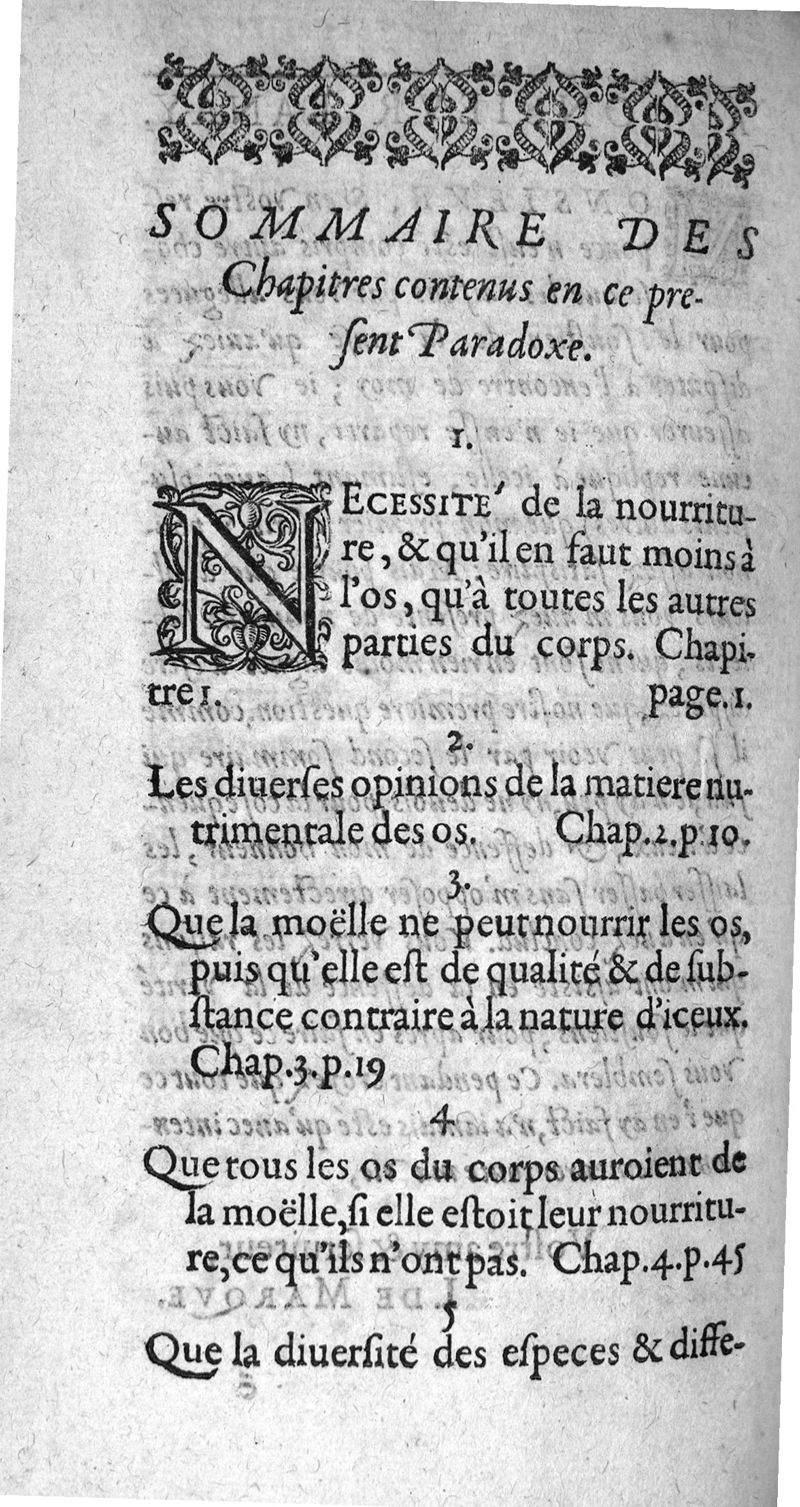 SOMMAIRE DES
Chapitres contenus en ce pre-
ſent Paradoxe.
1.
NECESSITE' de la nourritu-
re, & qu'il en faut moins à
l'os, qu'à toutes les autres
parties du corps. Chapi-
tre 1. page. 1.
2.
Les diuerſes opinions de la matiere nu-
trimentale des os. Chap. 2. p. 10.
3.
Que la moëlle ne peut nourrir les os,
puis qu'elle eſt de qualité & de ſub-
ſtance contraire à la nature d'iceux.
Chap. 3. p. 19
4.
Que tous les os du corps auroient de
la moëlle, ſi elle eſtoit leur nourritu-
re, ce qu'ils n'ont pas. Chap. 4. p. 45
5
Que la diuerſité des eſpeces & diffe-